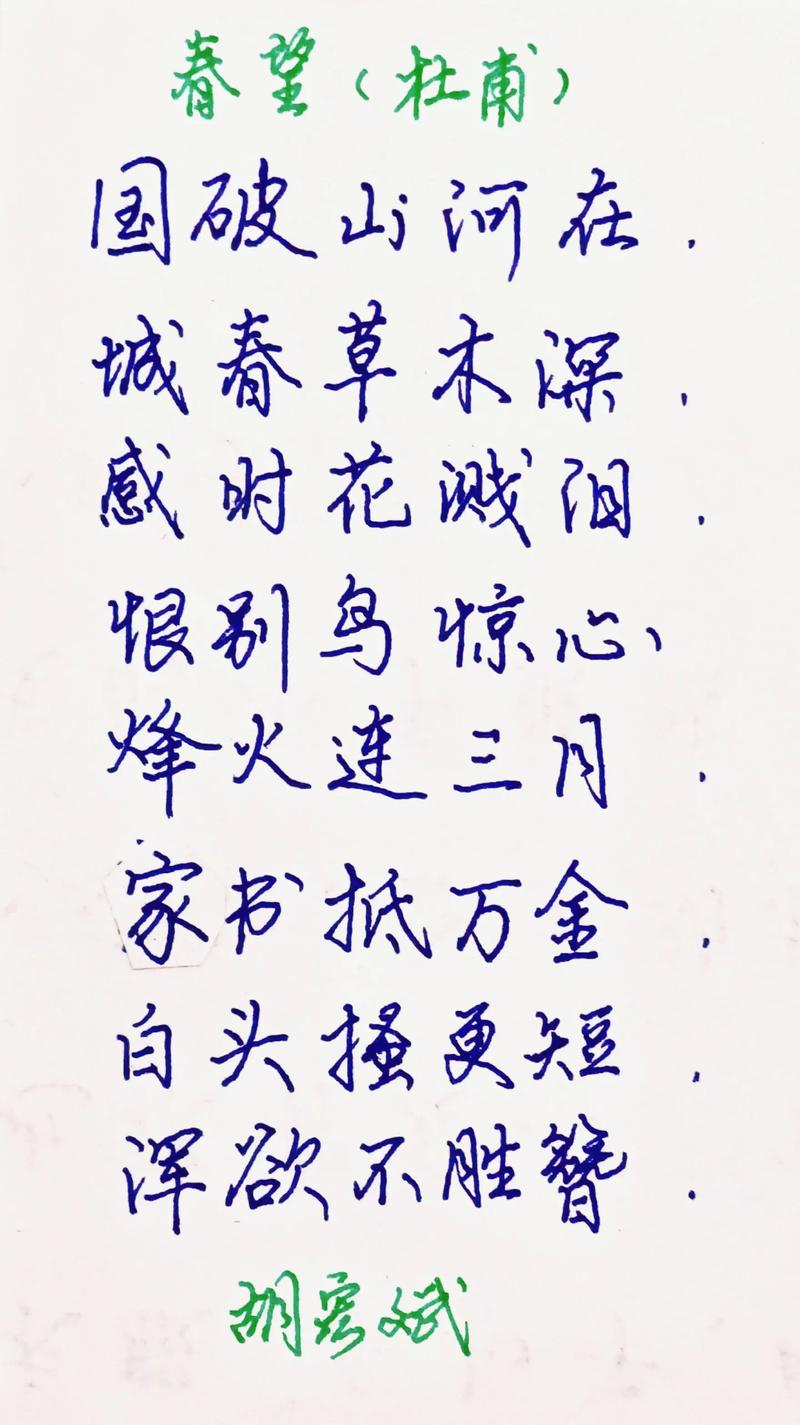 春望（杜甫）
国破山河在.
城春草木深.
感时花溅泪.
恨别鸟惊心、
烽火连三月.
家书抵万金.
白头搔更短.
浑欲不胜簪.
胡宏斌